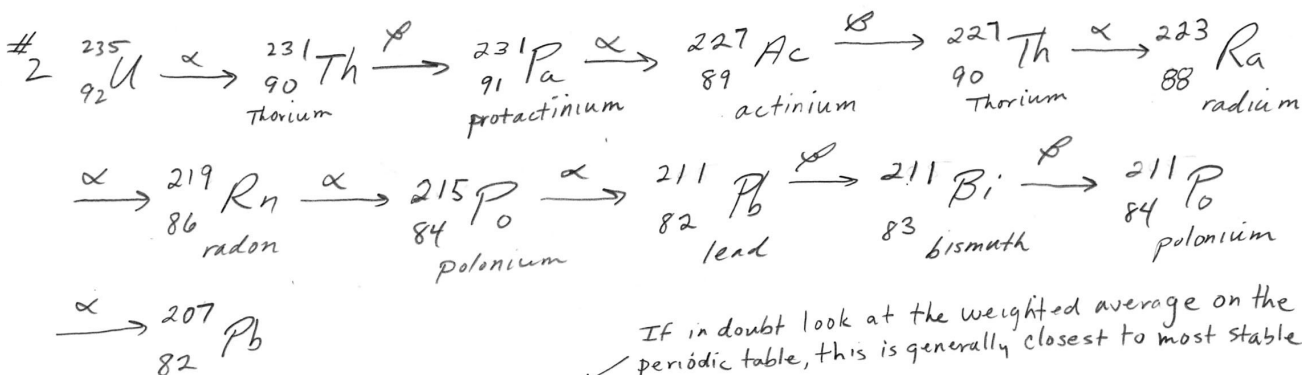 #2 ²³⁵₉₂U —α→ ²³¹₉₀Th —β→ ²³¹₉₁Pa —α→ ²²⁷₈₉Ac —β→ ²²⁷₉₀Th —α→ ²²³₈₈Ra
Thorium protactinium actinium Thorium radium
—α→ ²¹⁹₈₆Rn —α→ ²¹⁵₈₄Po —α→ ²¹¹₈₂Pb —β→ ²¹¹₈₃Bi —β→ ²¹¹₈₄Po
radon polonium lead bismuth polonium
—α→ ²⁰⁷₈₂Pb
If in doubt look at the weighted average on the
periodic table, this is generally closest to most stable